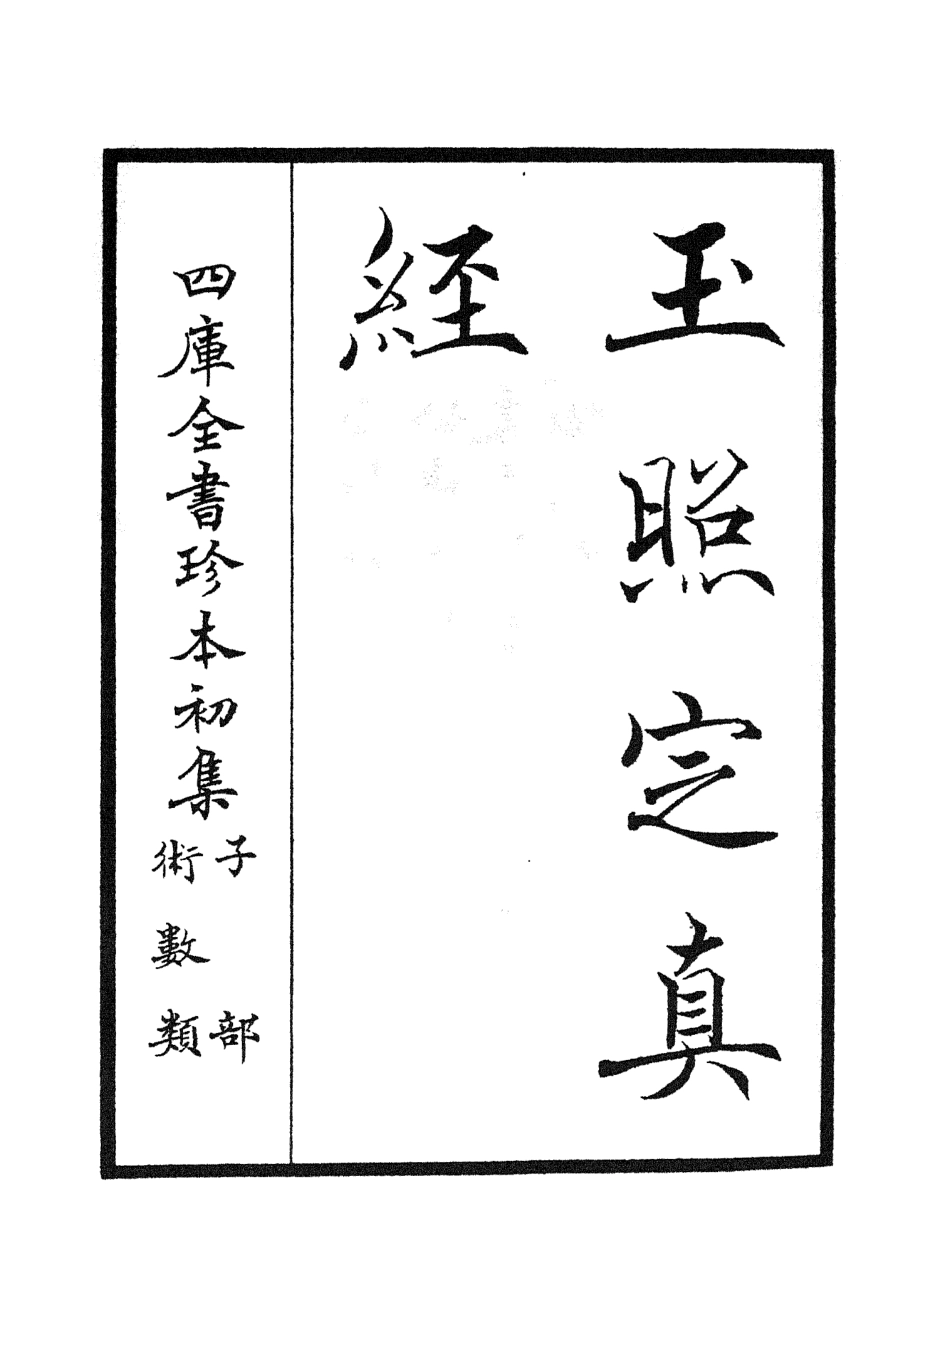 玉照定真
經
四庫全書珍本初集
子部
術數類